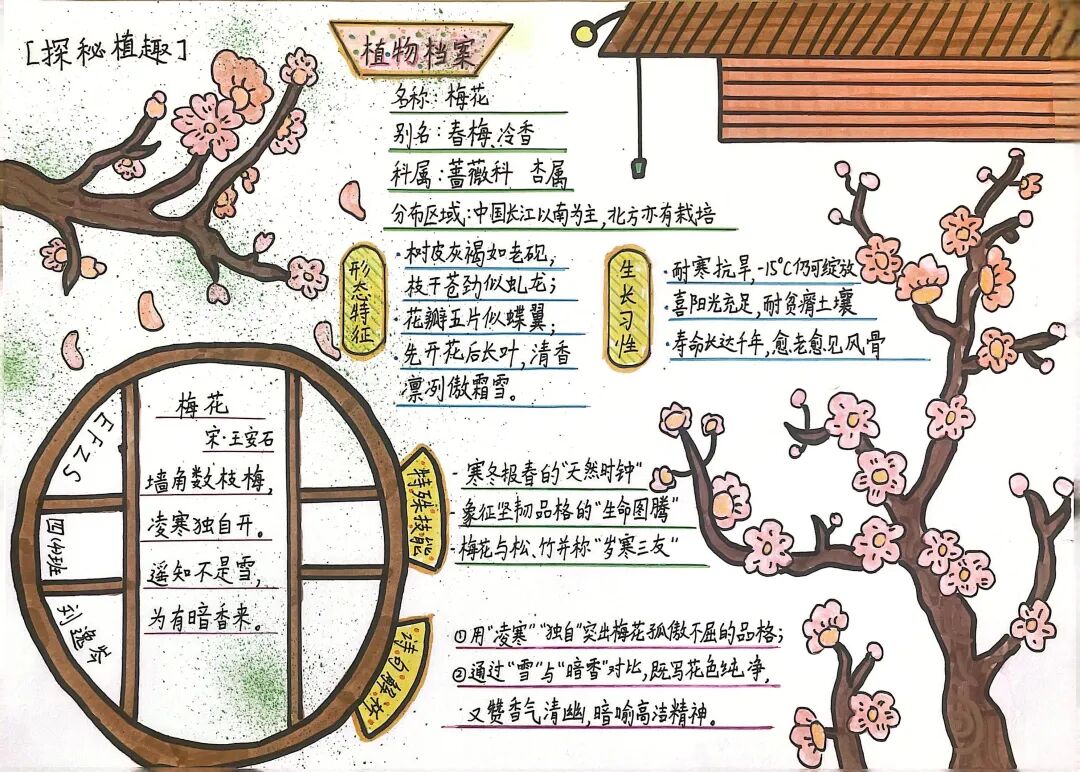 [探秘植趣]
植物档案
名称:梅花
别名:春梅、冷香
科属:蔷薇科 杏属
分布区域:中国长江以南为主,北方亦有栽培
形态特征
·树皮灰褐如老砚,
枝干苍劲似虬龙;
·花瓣五片似蝶翼;
·先开花后长叶,清香
凛冽傲霜雪。
生长习性
·耐寒抗旱,-15℃仍可绽放
·喜阳光充足,耐贫瘠土壤
·寿命长达千年,愈老愈见风骨
EFZS
四(4)班
刘逸岑
梅花
宋·王安石
墙角数枝梅,
凌寒独自开。
遥知不是雪,
为有暗香来。
特殊技能
·寒冬报春的"天然时钟"
·象征坚韧品格的"生命图腾"
·梅花与松、竹并称"岁寒三友"
诗句解析
①用"凌寒""独自"突出梅花孤傲不屈的品格;
②通过"雪"与"暗香"对比,既写花色纯净,
又赞香气清幽,暗喻高洁精神。